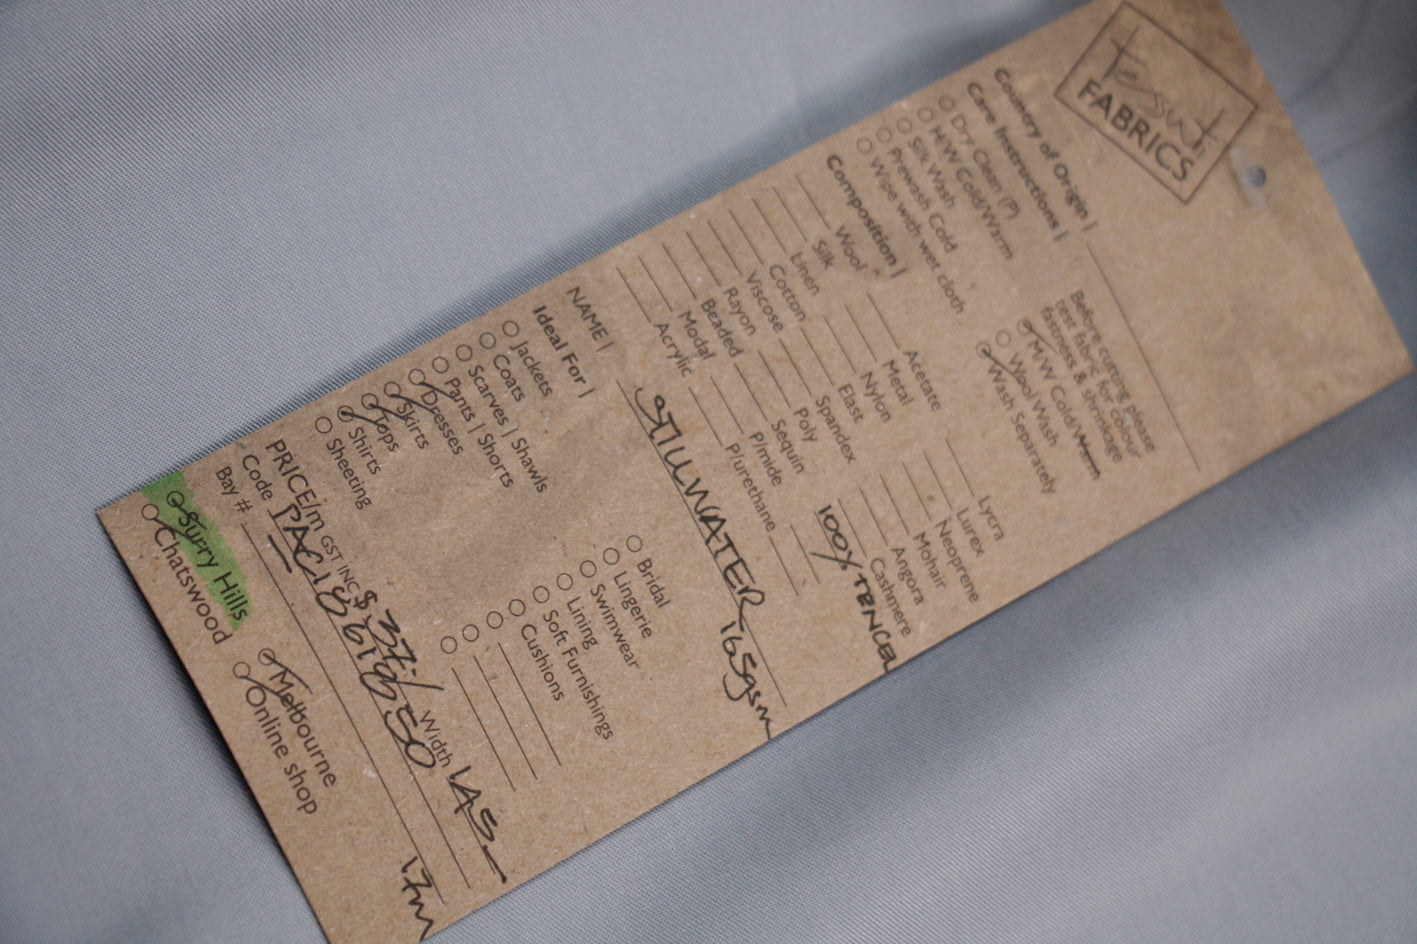 Tessuti
FABRICS
Country of Origin |
Care Instructions |
Before cutting please
test fabric for colour
fastness & shrinkage
Dry Clean (P)
H/W Cold/Warm
Silk Wash
Prewash Cold
Wipe with wet cloth
M/W Cold/Warm
Wool Wash
Wash Separately
Composition |
Wool
Silk
Linen
Cotton
Viscose
Rayon
Beaded
Modal
Acrylic
Acetate
Metal
Nylon
Elast
Spandex
Poly
Sequin
P/mide
P/urethane
Lycra
Lurex
Neoprene
Mohair
Angora
Cashmere
100% TENCEL
NAME | STILLWATER 165gsm
Ideal For |
Jackets
Coats
Scarves | Shawls
Pants | Shorts
Dresses
Skirts
Tops
Shirts
Sheeting
Bridal
Lingerie
Swimwear
Lining
Soft Furnishings
Cushions
PRICE/m GST INC $ Width 145
Code
Bay # 17m
Surry Hills
Chatswood
Melbourne
Online shop